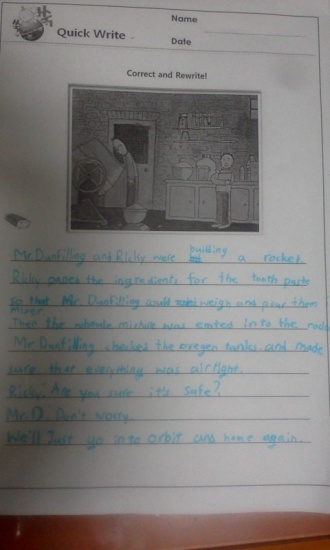 Name
Quick Write
Date
Correct and Rewrite!
Mr. Dunfilling and Ricky were building a rocket.
Ricky paced the ingredients for the tooth paste
so that Mr. Dunfilling could weigh and pour them
mixer.
Then the whole mixture was emted into the
Mr Dunfilling checked the oxegen tanks and made
sure that everyming was airtight.
Ricky. Are you sure it's safe?
Mr. D. Don't worry.
We'll Just go into orbit and home again.